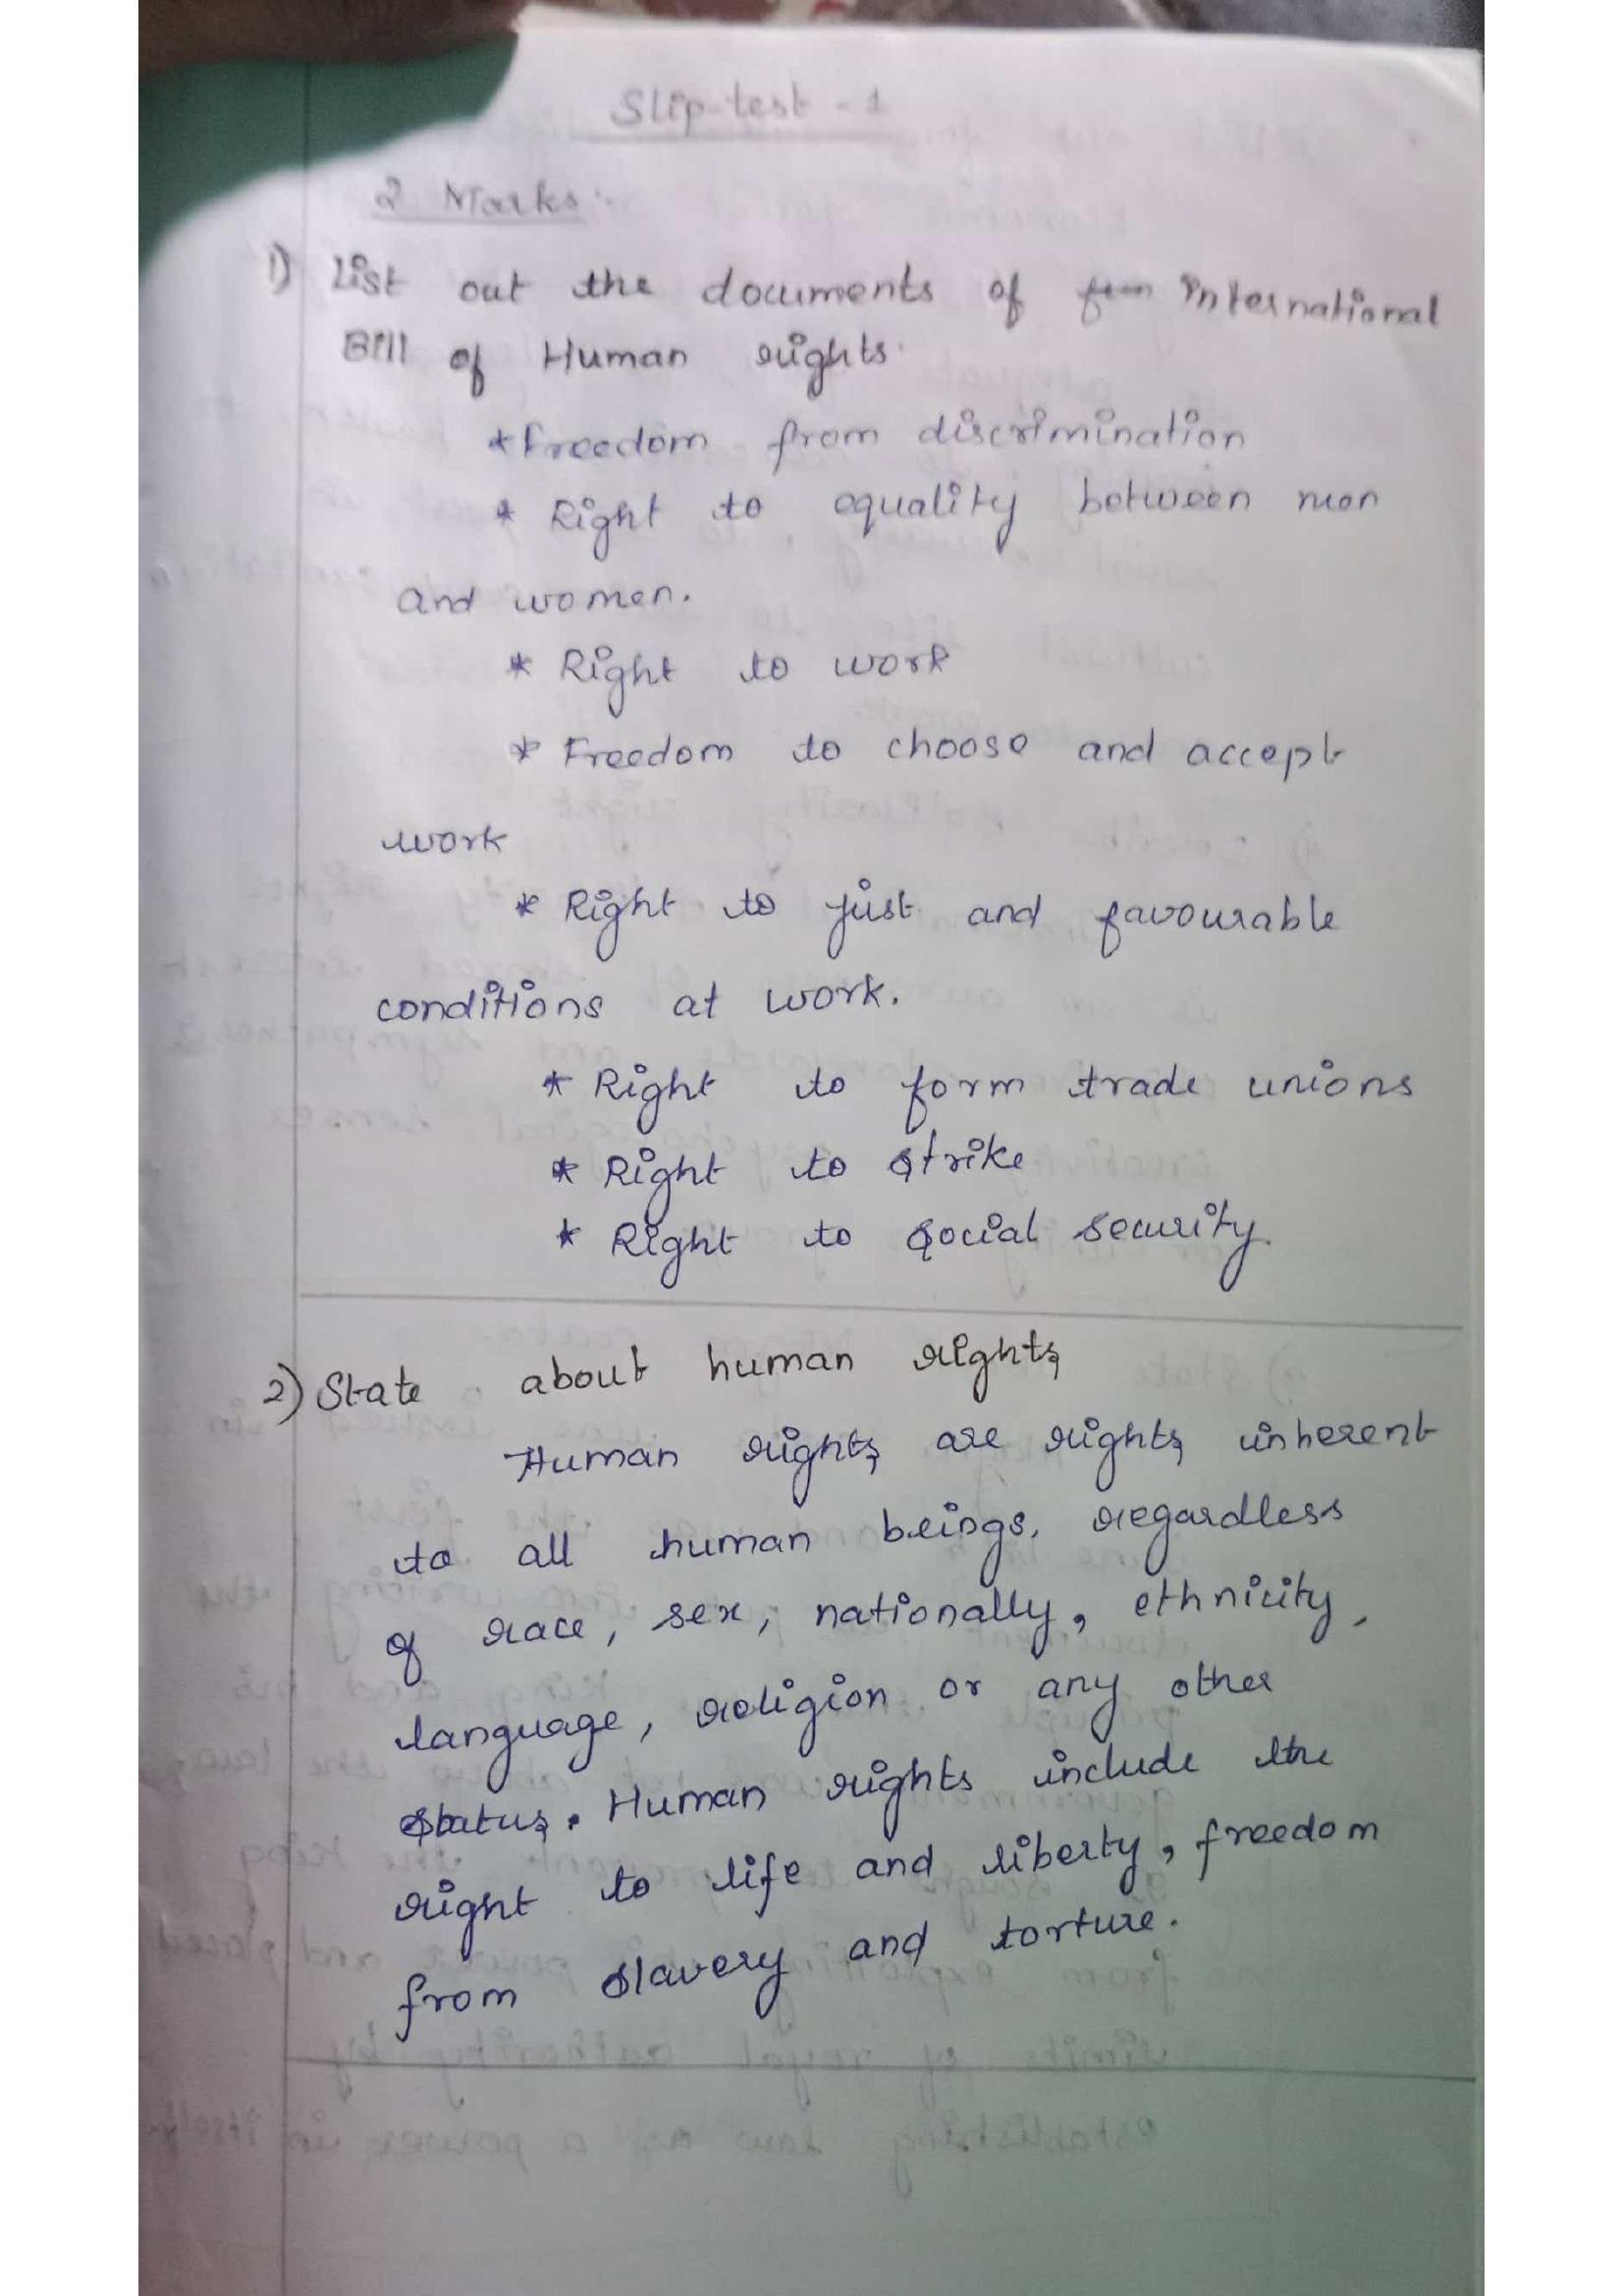 Slip-test - 1
2 Marks:-
1) List out the documents of International
Bill of Human rights.
* Freedom from discrimination
* Right to equality between men
and women.
* Right to work
* Freedom to choose and accept
work
* Right to just and favourable
conditions at work.
* Right to form trade unions
* Right to strike
* Right to social security.
2) State about human rights
Human rights are rights inherent
to all human beings, regardless
of race, sex, nationally, ethnicity,
language, religion or any other
status. Human rights include the
right to life and liberty, freedom
from slavery and torture.